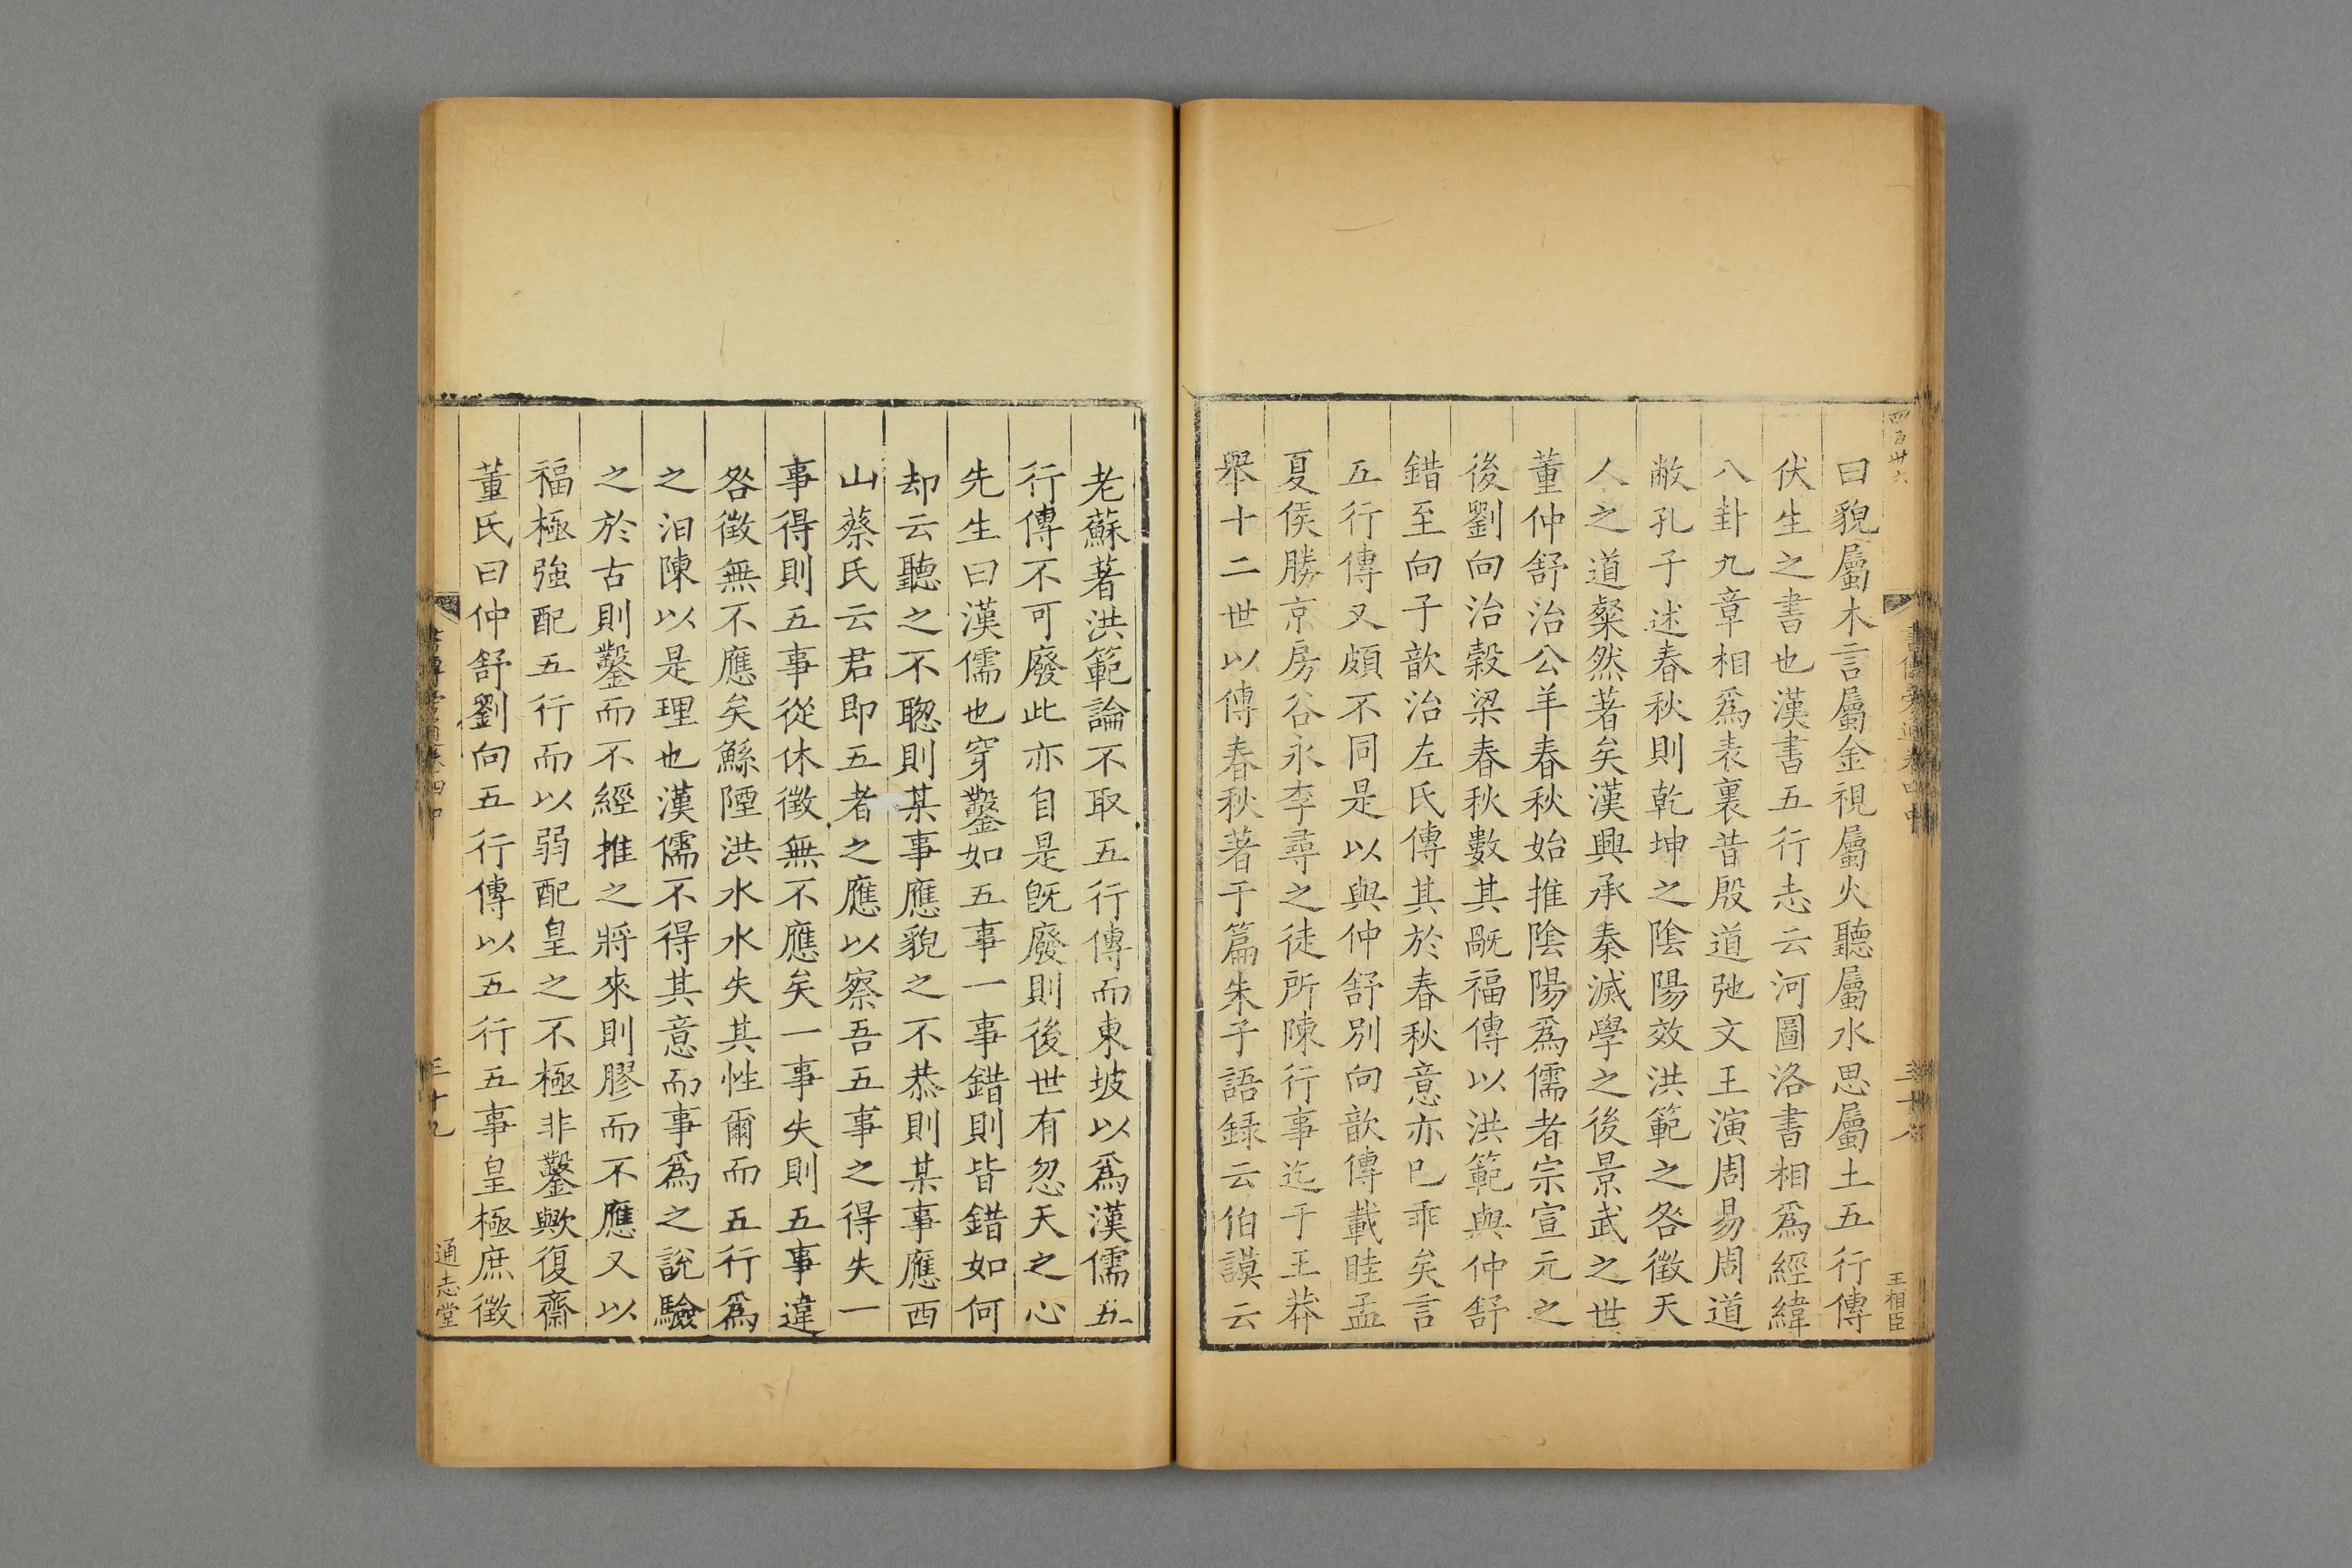 四百卅六
書傳旁通卷四中
三十八
王相臣
曰貌屬木言屬金視屬火聽屬水思屬土五行傳
伏生之書也漢書五行志云河圖洛書相爲經緯
八卦九章相爲表裏昔殷道弛文王演周易周道
敝孔子述春秋則乾坤之陰陽效洪範之咎徵天
人之道粲然著矣漢興承秦滅學之後景武之世
董仲舒治公羊春秋始推陰陽爲儒者宗宣元之
後劉向治榖梁春秋數其旤福傳以洪範與仲舒
錯至向子歆治左氏傳其於春秋意亦已乖矣言
五行傳又頗不同是以與仲舒別向歆傳載眭孟
夏侯勝京房谷永李尋之徒所陳行事迄于王莽
舉十二世以傳春秋著于篇朱子語録云伯謨云
老蘇著洪範論不取五行傳而東坡以爲漢儒五
行傳不可廢此亦自是旣廢則後世有忽天之心
先生曰漢儒也穿鑿如五事一事錯則皆錯如何
却云聽之不聰則某事應貌之不恭則某事應西
山蔡氏云君即五者之應以察吾五事之得失一
事得則五事從休徵無不應矣一事失則五事違
咎徵無不應矣鯀陻洪水水失其性爾而五行爲
之汩陳以是理也漢儒不得其意而事爲之說驗
之於古則鑿而不經推之將來則膠而不應又以
福極強配五行而以弱配皇之不極非鑿歟復齋
董氏曰仲舒劉向五行傳以五行五事皇極庶徵
書傳旁通卷四中
三十九
通志堂